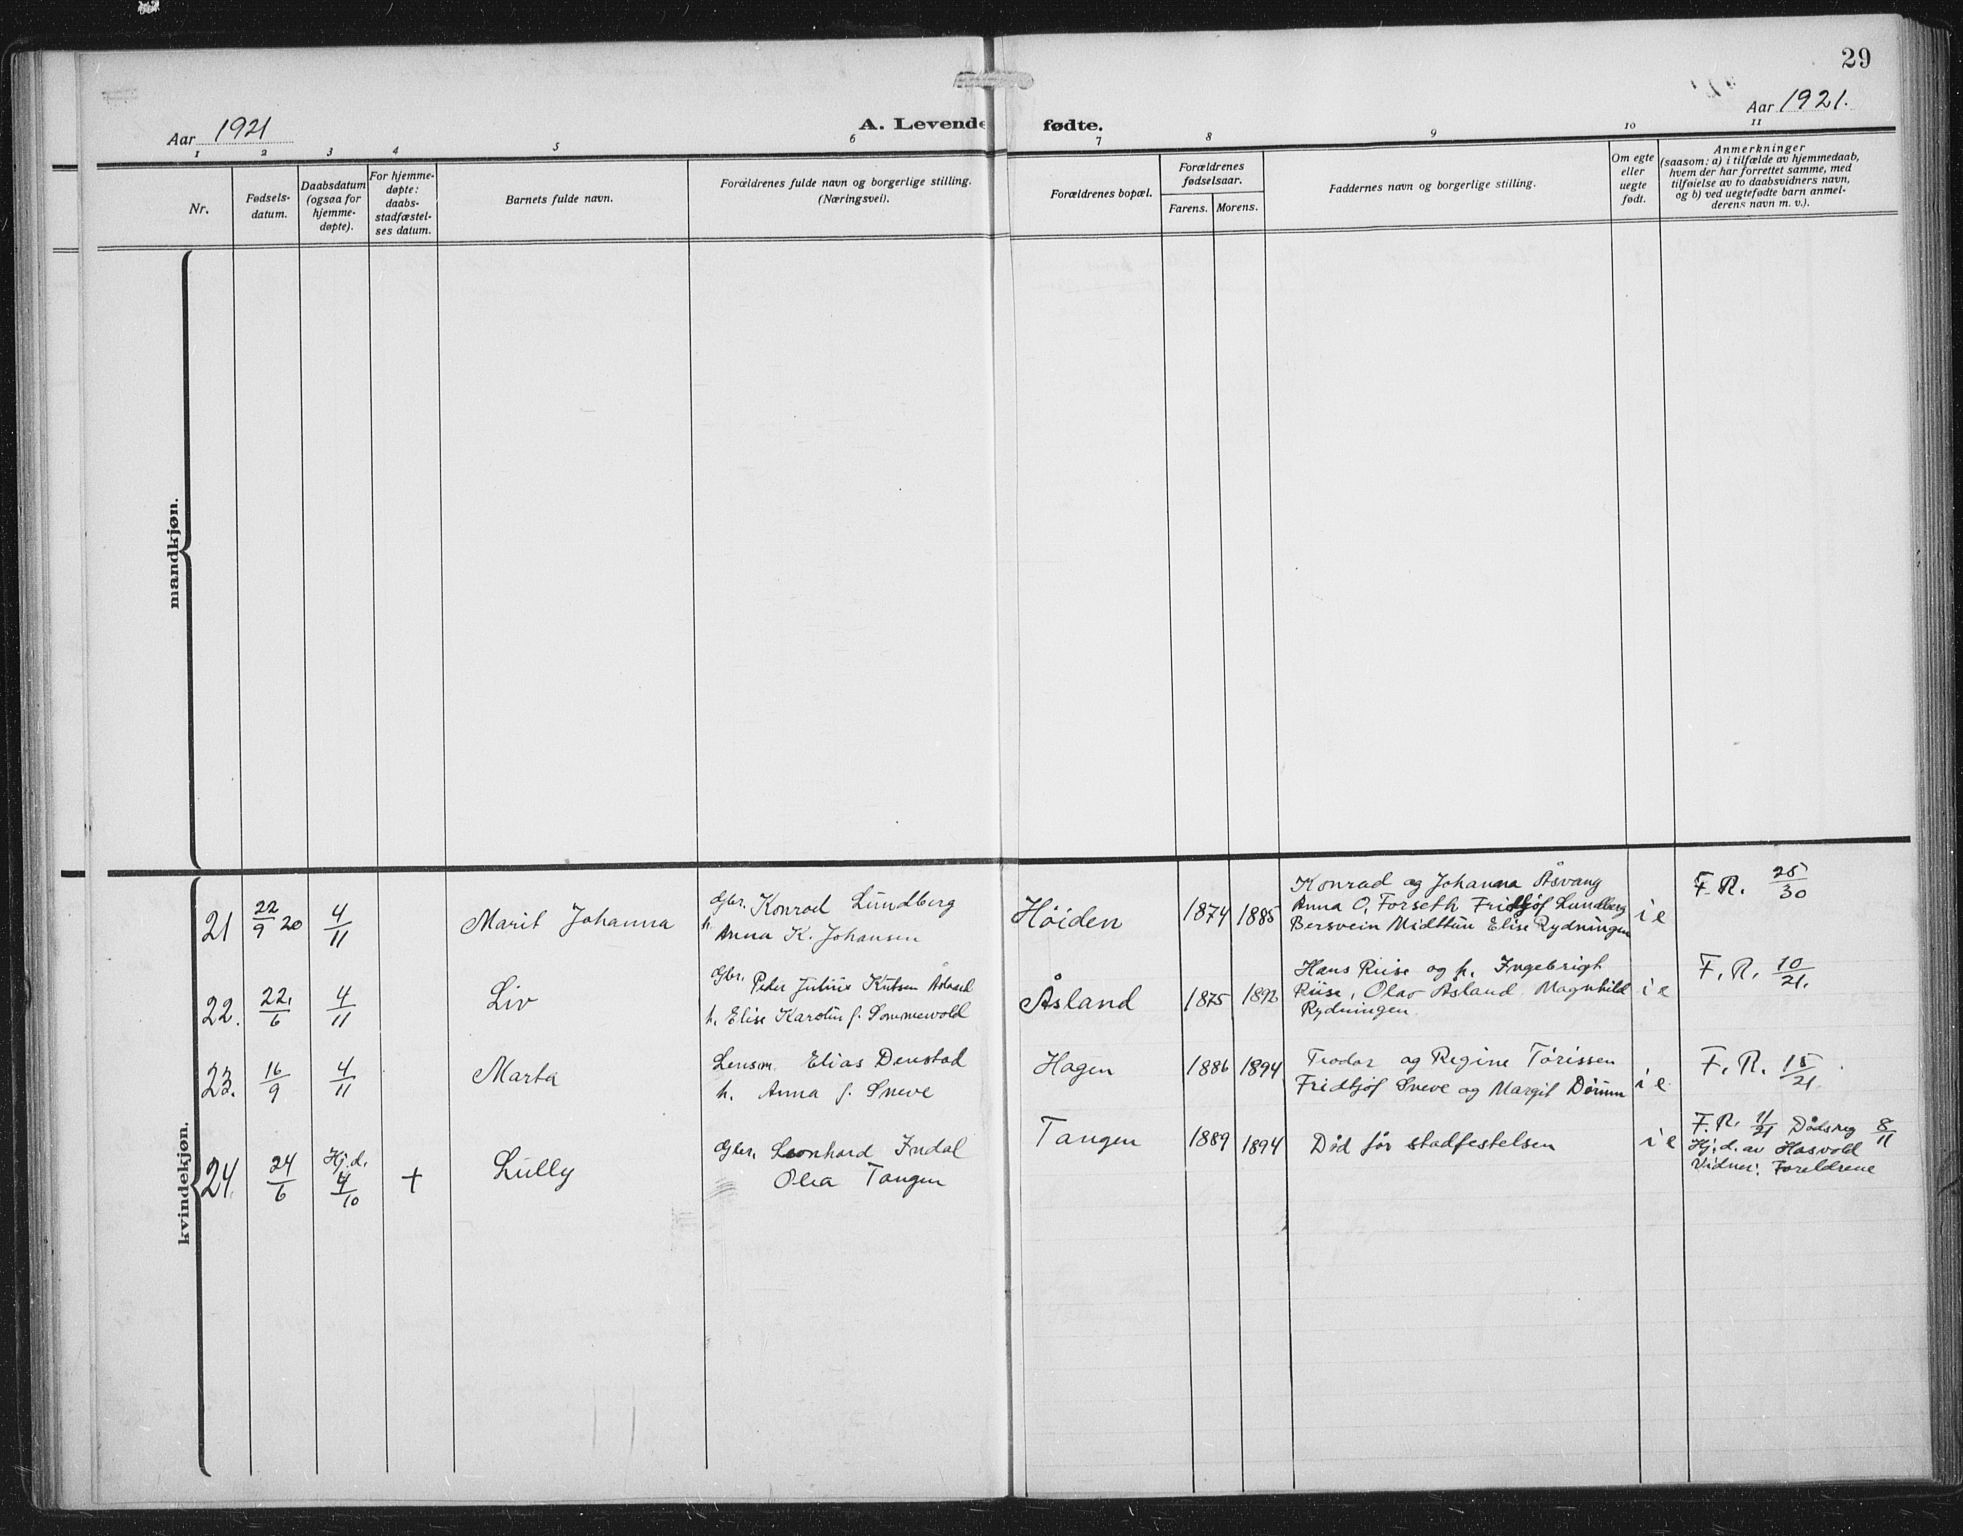 29
Aar 1921
A. Levende fødte.
Aar 1921.
1 2 3 4 5 6 7 8 9 10 11
Nr.
Fødsels-
datum.
Daabsdatum
(ogsaa for
hjemme-
døpte).
For hjemme-
døpte:
daabs-
stadfæstel-
ses datum.
Barnets fulde navn.
Forældrenes fulde navn og borgerlige stilling.
(Næringsvei).
Forældrenes bopæl.
Forældrenes
fødselsaar.
Farens. Morens.
Faddernes navn og borgerlige stilling.
Om egte
eller
uegte
født.
Anmerkninger
(saasom: a) i tilfælde av hjemmedaab,
hvem der har forrettet samme, med
tilføielse av to daabsvidners navn,
og b) ved uegtefødte barn anmel-
derens navn m. v.).
mandkjøn.
kvindekjøn.
21 22/9 20 4/11 Marit Johanna
Gbr. Konrad Lundberg
h. Anna K. Johansen
Høiden 1874 1885
Konrad og Johanna Åsvang
Anna O. Forseth Fridtjóf Lundberg
Bersvein Midttun Elise Rydningen
i e
F. R. 25/30
22. 22./6 4/11 Liv
Gbr. Peder Julius Knutsen Åsland
h. Elise Karolin f. Sommervold
Åsland 1875 1892
Hans Riise og h. Ingebrigt
Riise, Olav Åsland Magnhild
Rydningen.
i e
F. R. 10/21.
23. 16/9 4/11 Marta
Lensm. Elias Denstad
h. Anna f. Sneve
Hagen 1886 1894
Trodar og Regine Tørissen
Fridtjóf Sneve og Margit Dørum
i e
F. R. 15/21.
24. 24/6 Hj.d. 4/10 + Lully
Gbr. Leonhard Indal
Olea Tangen
Tangen 1889 1894
Død før stadfestelsen
i e
F. R. 11/21 Dødsreg 8/11
Hj. d. av Hasvold
Vidner: Foreldrene